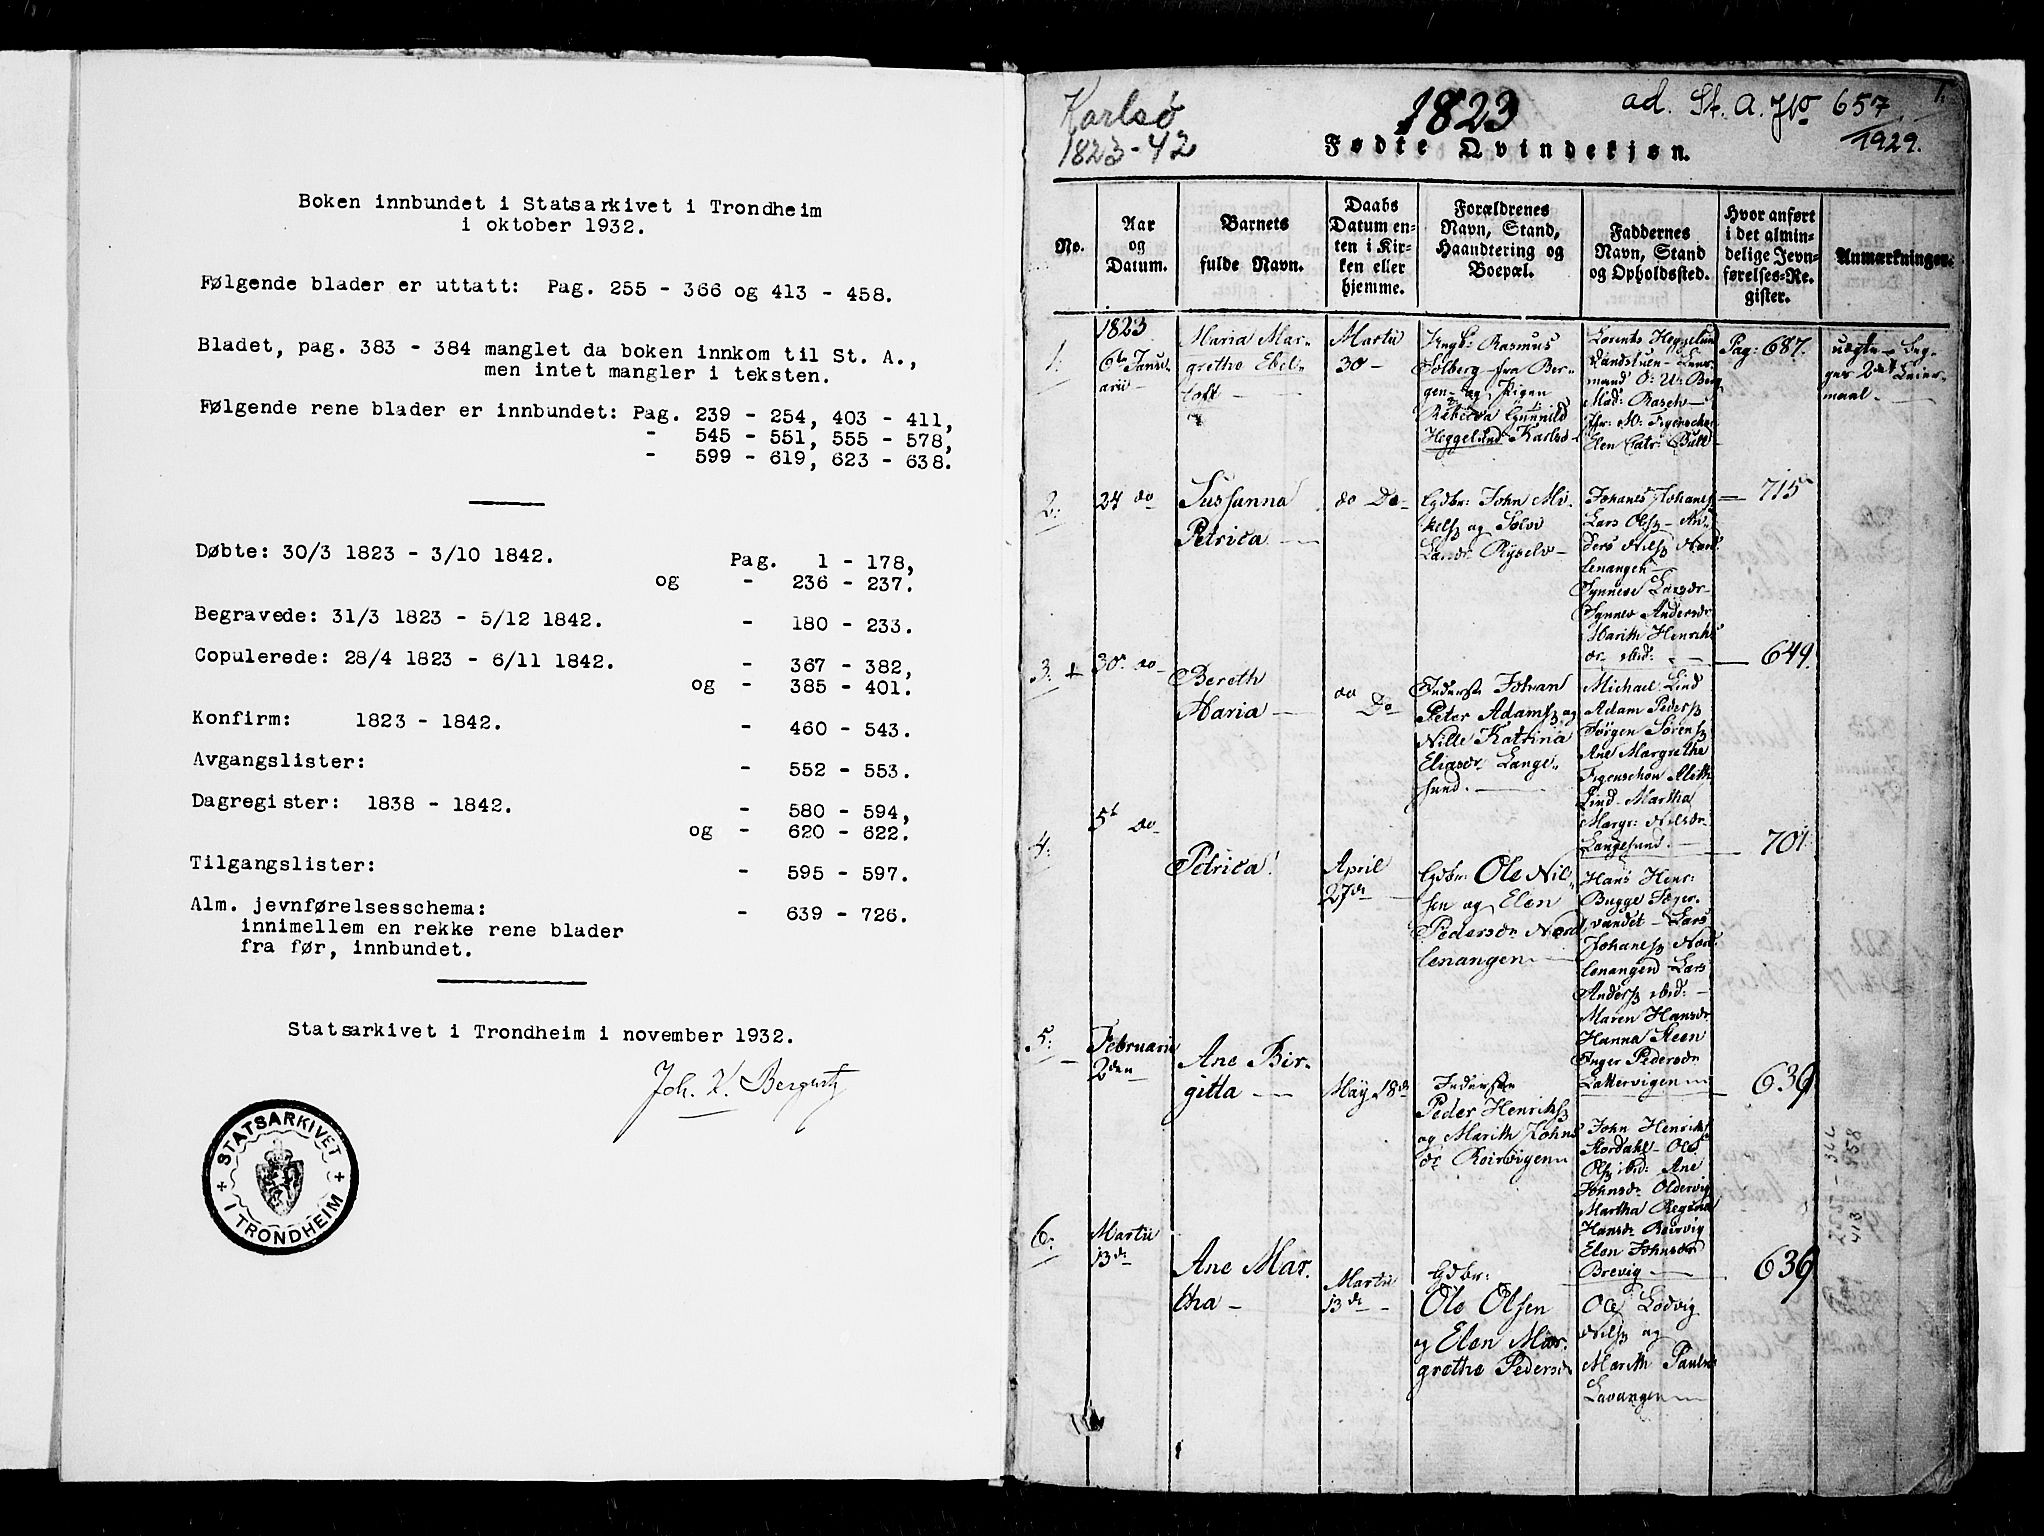 Boken innbundet i Statsarkivet i Trondheim
i oktober 1932.
Følgende blader er uttatt: Pag. 255 - 366 og 413 - 458.
Bladet, pag. 383 - 384 manglet da boken innkom til St. A.,
men intet mangler i teksten.
Følgende rene blader er innbundet: Pag. 239 - 254, 403 - 411,
- 545 - 551, 555 - 578,
- 599 - 619, 623 - 638.
Døbte: 30/3 1823 - 3/10 1842. Pag. 1 - 178,
og - 236 - 237.
Begravede: 31/3 1823 - 5/12 1842. - 180 - 233.
Copulerede: 28/4 1823 - 6/11 1842. - 367 - 382,
og - 385 - 401.
Konfirm: 1823 - 1842. - 460 - 543.
Avgangslister: - 552 - 553.
Dagregister: 1838 - 1842. - 580 - 594,
og - 620 - 622.
Tilgangslister: - 595 - 597.
Alm. jevnførelsesschema: - 639 - 726.
innimellem en rekke rene blader
fra før, innbundet.
Statsarkivet i Trondheim i november 1932.
STATSARKIVET
I TRONDHEIM
Karlsø
1823-42
1823
ad. St. A. No 657
1929.
1.
Fødte Qvindekjøn.
No.
Aar
og
Datum.
Barnets
fulde Navn.
Daabs
Datum en-
ten i Kir-
ken eller
hjemme.
Forældrenes
Navn, Stand,
Haandtering og
Boepæl.
Faddernes
Navn, Stand
og Opholdssted.
Hvor anført
i det almin-
delige Jevn-
førelses-Re-
gister.
Anmærkninger.
1.
1823
6te Janu-
arii
Maria Mar-
grethe Ebel-
toft
Martii
30
Ungk: Rasmus
Solberg fra Ber-
gen og Pigen
Rebecca Gunnild
Heggelund Karlsø
Lorents Heggelund
Mad: Rasch
Elen Catr: Bull
Pag: 687.
uægte
2.
24 do
Susanna
Petrica
do Do
Gdbr: John Mi-
kels og Solvi
Johanes Johanes
Lars Ols An-
ders Nils Nord
lenangen
Synneve Larsdr
Synnev Andersdr
Marith Henriks
dr ibid:
715
3. +
30 do
Bereth
Maria
do Do
Inderst Johan
Peter Adams og
Nille Katrina
Eliasdr Lange-
sund.
Michael Lind
Adam Peders
Jørgen Sørens
Ane Margrethe
Figenschou
Lind Martha
Margr: Nilsdr
Langesund.
649.
4.
5t do
Petrica
April
27de
Gdbr: Ole Nil-
sen og Elen
Pedersdr Nord
lenangen
Hans Henr:
Bugge
vandet Lars
Johanes Nord
lenangen Lars
Anders ibid:
Maren Hansdr
Hanna Steen
Inger Pedersdr
Lattervigen
701
5.
Februarii
2den
Ane Bir-
gitta
May 18de
Indersten
Peder Henriks
og Marith Johns
dr Reirvigen
John Henrik
Stordahl Ole
Ols ibid: Ane
Johnsdr Oldervig
Martha Regina
Hansdr Reirvig
Elen Johnsdr
Brevig
639
6.
Martii
13de
Ane Mar-
tha
Martii
13de
Gdbr:
Ole Olsen
og Elen Mar-
grethe Pedersdr
Ole Lodvig
Nils og
Marith Pauls
Lavangen
639
255 - 366
413 458